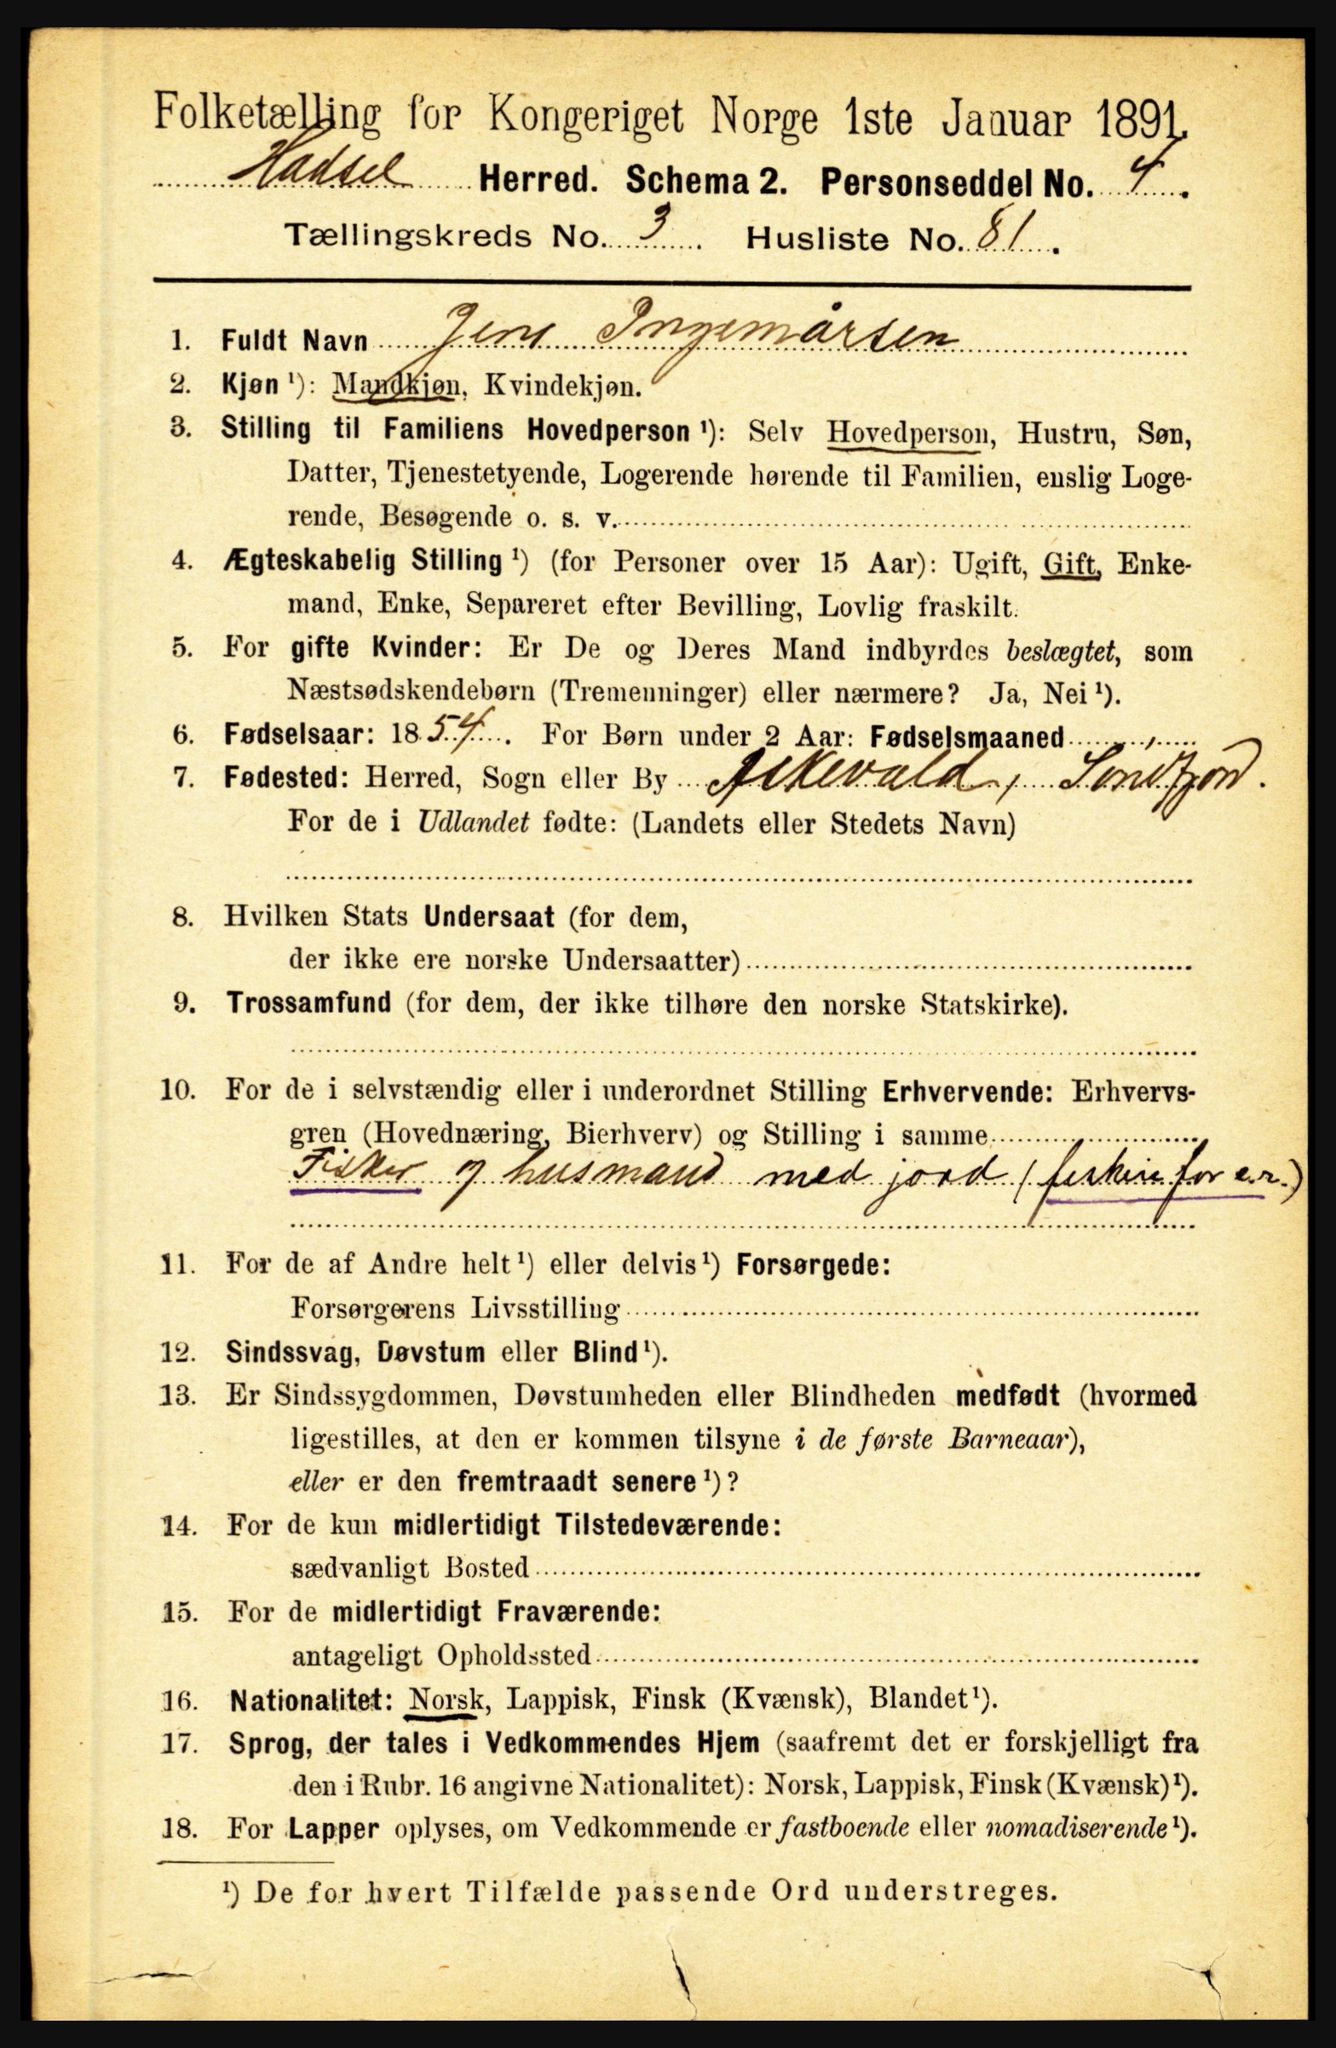 Folketælling for Kongeriget Norge 1ste Januar 1891.
Hadsel Herred. Schema 2. Personseddel No. 4.
Tællingskreds No. 3. Husliste No. 81.
1. Fuldt Navn Jens Ingemårsen
2. Kjøn ¹): Mandkjøn, Kvindekjøn.
3. Stilling til Familiens Hovedperson ¹): Selv Hovedperson, Hustru, Søn,
Datter, Tjenestetyende, Logerende hørende til Familien, enslig Loge-
rende, Besøgende o. s. v.
4. Ægteskabelig Stilling ¹) (for Personer over 15 Aar): Ugift, Gift, Enke-
mand, Enke, Separeret efter Bevilling, Lovlig fraskilt.
5. For gifte Kvinder: Er De og Deres Mand indbyrdes beslægtet, som
Næstsødskendebørn (Tremenninger) eller nærmere? Ja, Nei ¹).
6. Fødselsaar: 1854. For Børn under 2 Aar: Fødselsmaaned
7. Fødested: Herred, Sogn eller By Askevold, Søndfjord.
For de i Udlandet fødte: (Landets eller Stedets Navn)
8. Hvilken Stats Undersaat (for dem,
der ikke ere norske Undersaatter)
9. Trossamfund (for dem, der ikke tilhøre den norske Statskirke).
10. For de i selvstændig eller i underordnet Stilling Erhvervende: Erhvervs-
gren (Hovednæring, Bierhverv) og Stilling i samme
Fisker og husmand med jord (fiskeri for e.r.)
11. For de af Andre helt ¹) eller delvis ¹) Forsørgede:
Forsørgerens Livsstilling
12. Sindssvag, Døvstum eller Blind ¹).
13. Er Sindssygdommen, Døvstumheden eller Blindheden medfødt (hvormed
ligestilles, at den er kommen tilsyne i de første Barneaar),
eller er den fremtraadt senere ¹)?
14. For de kun midlertidigt Tilstedeværende:
sædvanligt Bosted
15. For de midlertidigt Fraværende:
antageligt Opholdssted
16. Nationalitet: Norsk, Lappisk, Finsk (Kvænsk), Blandet ¹).
17. Sprog, der tales i Vedkommendes Hjem (saafremt det er forskjelligt fra
den i Rubr. 16 angivne Nationalitet): Norsk, Lappisk, Finsk (Kvænsk) ¹).
18. For Lapper oplyses, om Vedkommende er fastboende eller nomadiserende ¹).
¹) De for hvert Tilfælde passende Ord understreges.